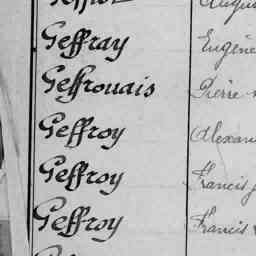 Geffray Eugène
Geffrouais Pierre
Geffroy
Geffroy Francis
Geffroy Francis